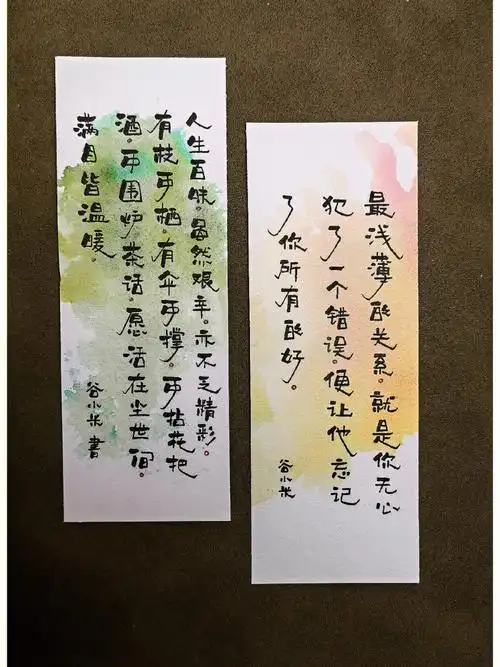 人生百味。虽然艰辛。亦不乏精彩。
有枝可栖。有伞可撑。可拈花把
酒。可围炉茶话。愿活在尘世间。
满目皆温暖。
谷小米書
最浅薄的关系。就是你无心
犯了一个错误。便让他忘记
了你所有的好。
谷小米